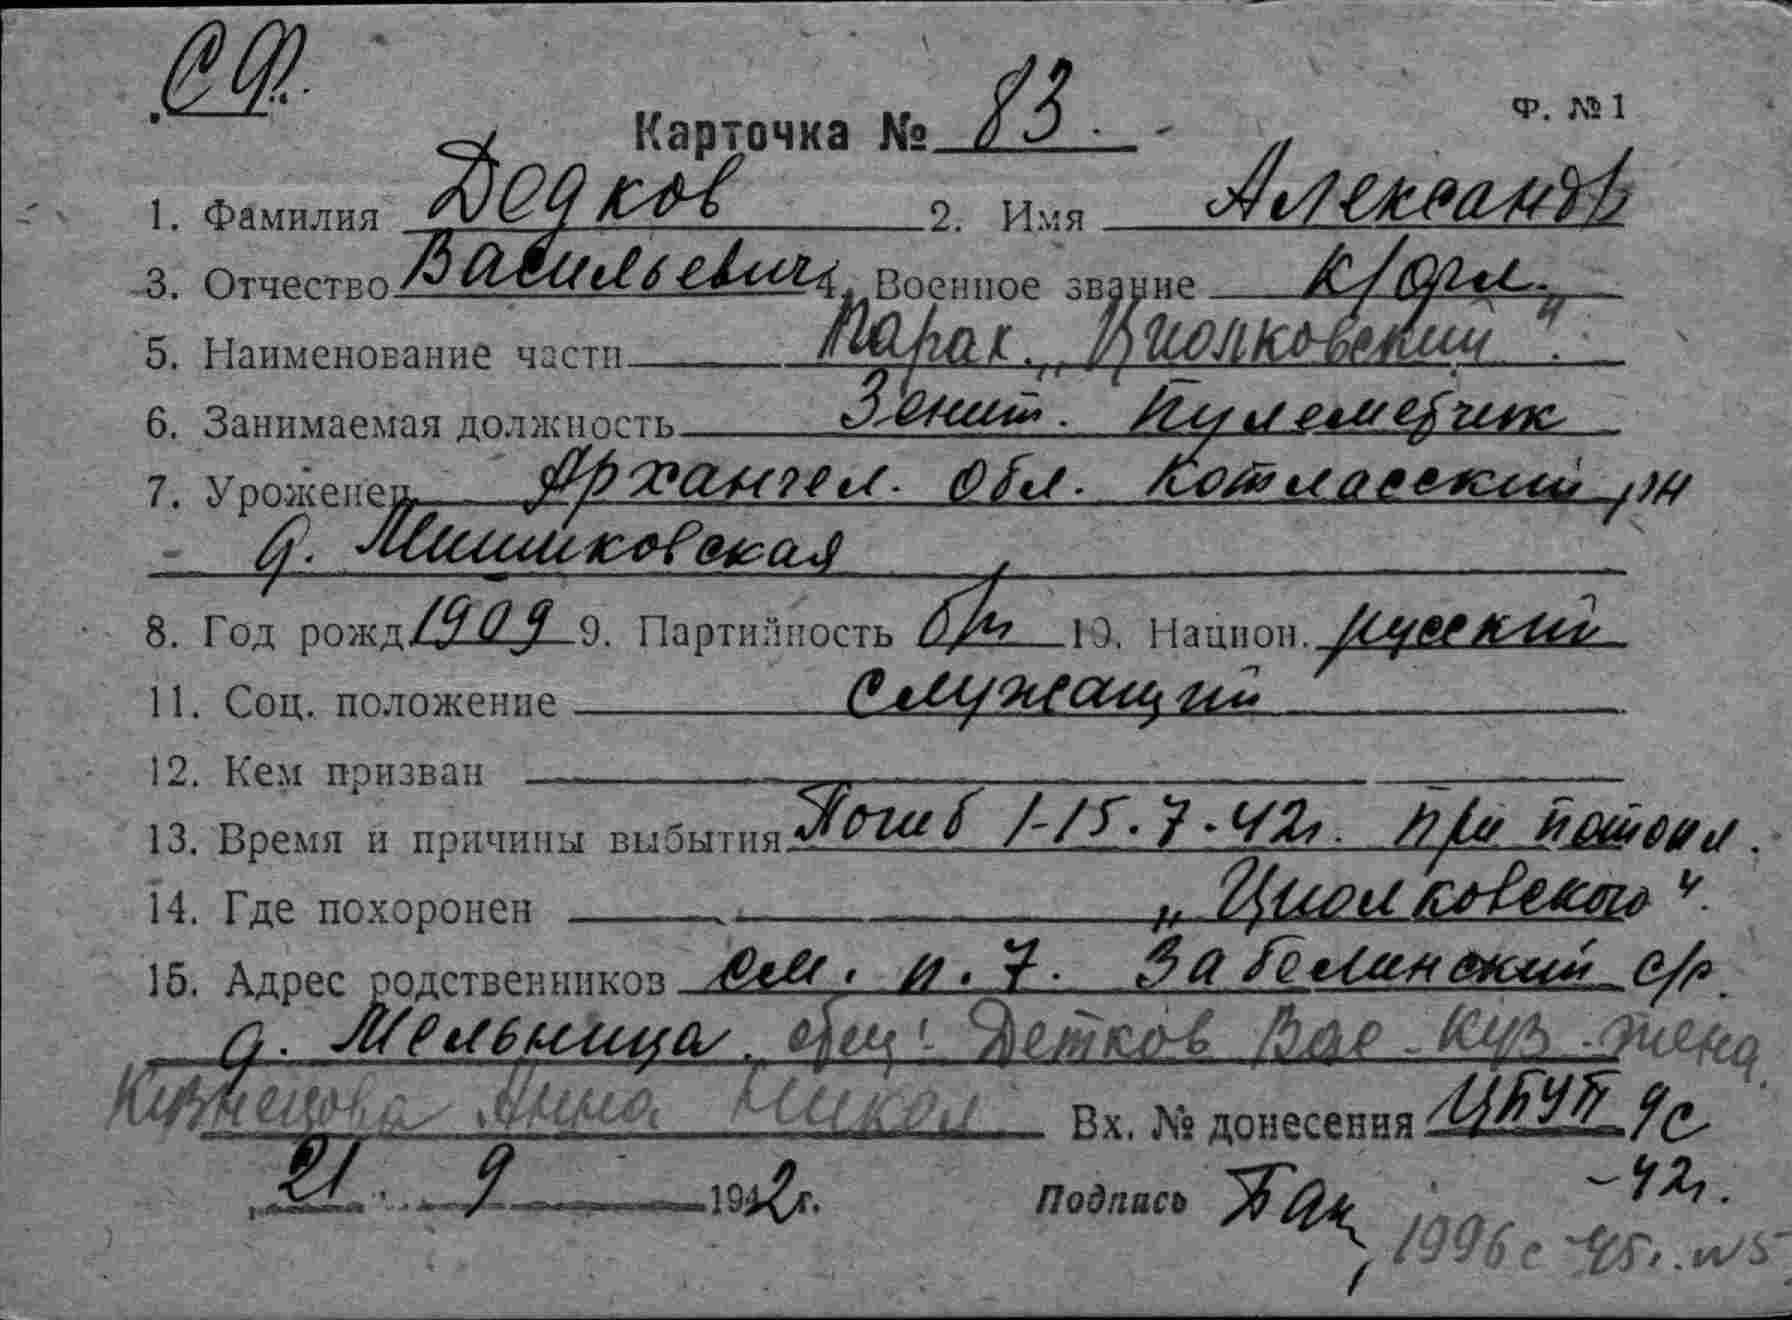 СФ.
Ф. №1
Карточка № 83.
1. Фамилия Дедков 2. Имя Александр
3. Отчество Васильевич 4. Военное звание к/фл.
5. Наименование части Парах. „Циолковский".
6. Занимаемая должность Зенит. пулеметчик
7. Уроженец Архангел. обл. Котласский рн
д. Мишиковская
8. Год рожд. 1909 9. Партийность б/п 10. Национ. русский
11. Соц. положение служащий
12. Кем призван
13. Время и причины выбытия Погиб 1-15.7.42г. при потопл.
14. Где похоронен „Циолковского".
15. Адрес родственников см. п. 7. Забелинский с/с.
д. Мельница. отец: Детков Вас. Куз. жена
Кузнецова Анна Никол. Вх. № донесения ЦБУП 9с
-42г.
21. 9 1942г. Подпись
1996с -45г. №5